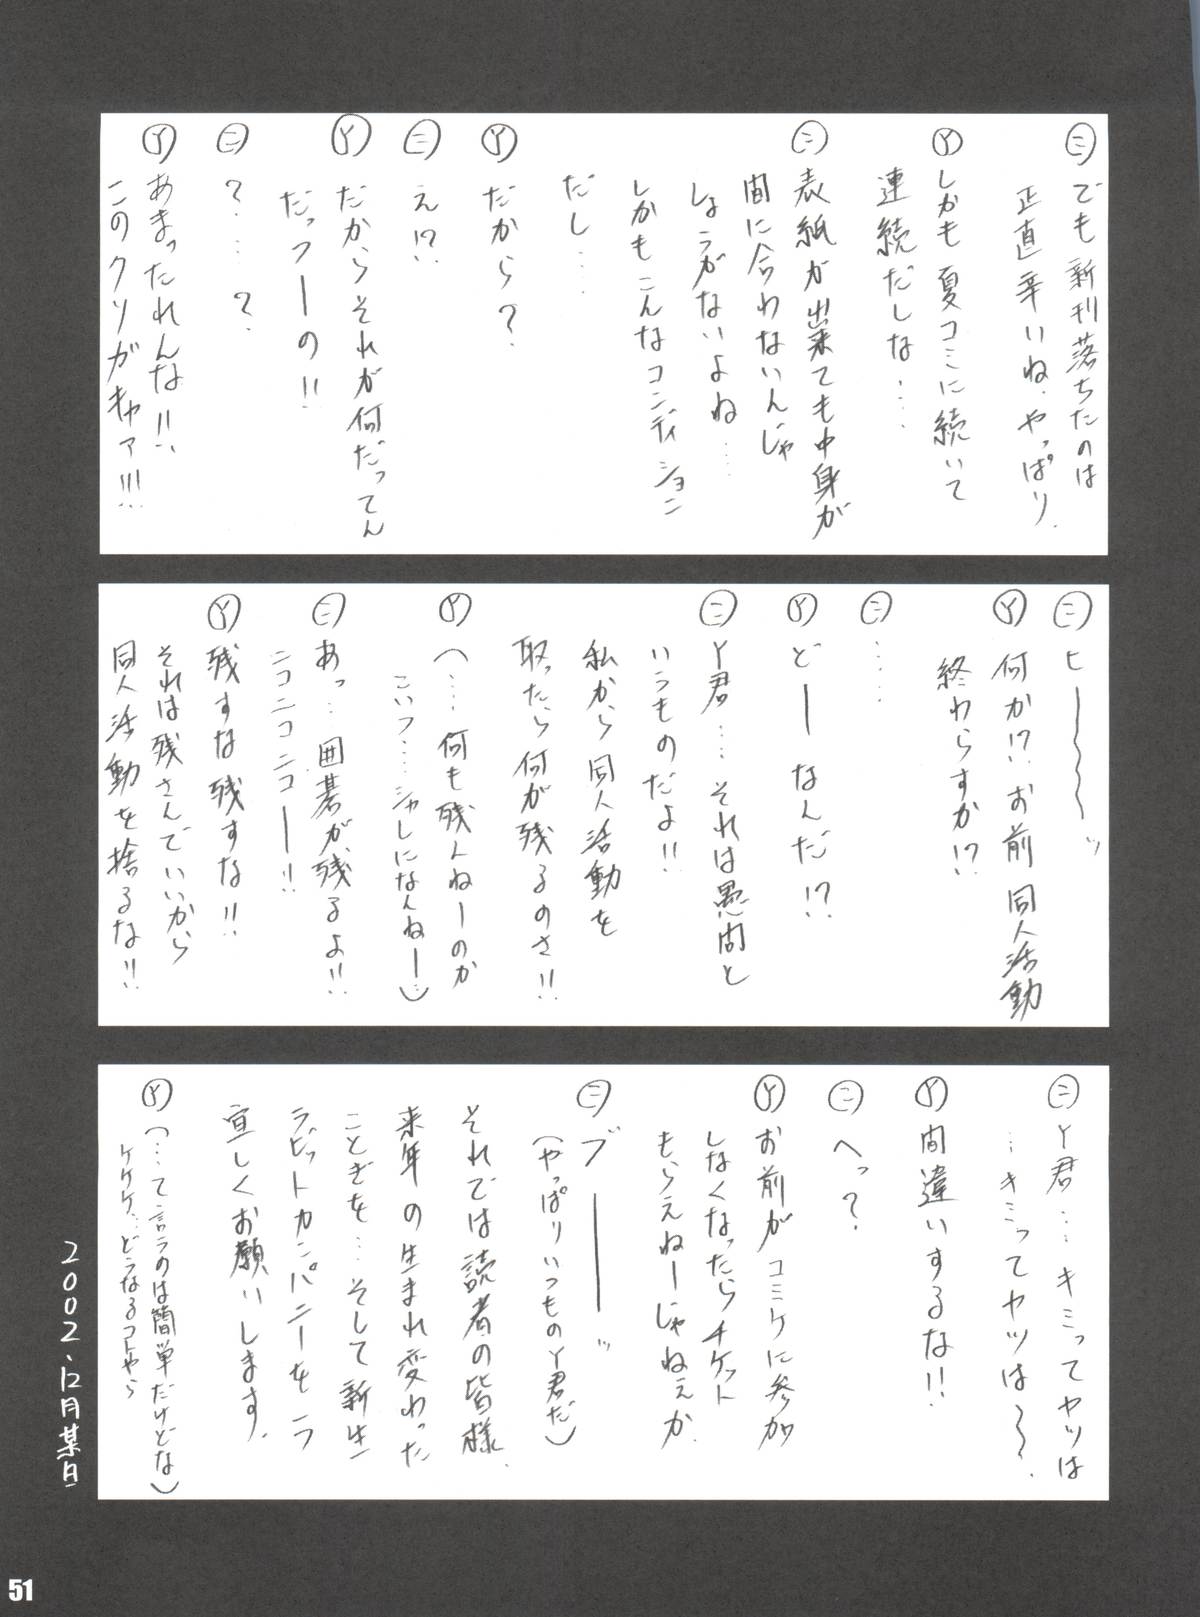 ㊁でも新刊落ちたのは
正直辛いね、やっぱり、
Ⓨしかも夏コミに続いて
連続だしな‥‥
㊁表紙が出来ても中身が
間に合わないんじゃ
しょうがないよね‥‥
しかもこんなコンディション
だし‥‥
Ⓨだから?
㊁え!?
Ⓨだからそれが何だってん
だっつーの!!
㊁?‥‥?
Ⓨあまったれんな!!
このクソガキャァ!!!
㊁ヒ〜〜〜ッ
Ⓨ何か!?お前同人活動
終わらすか!?
㊁‥‥
Ⓨどーなんだ!?
㊁Y君‥‥それは愚問と
いうものだよ!!
私から同人活動を
取ったら何が残るのさ!!
Ⓨ(‥‥何も残んねーのか
こいつ‥‥シャレになんねー‥)
㊁あっ‥囲碁が残るよ!!
ニコニコニコー!!
Ⓨ残すな残すな!!
それは残さんでいいから
同人活動を捨るな!!
㊁Y君‥‥キミってヤツは
‥キミってヤツは〜、
Ⓨ間違いするな!!
㊁へっ?
Ⓨお前がコミケに参加
しなくなったらチケット
もらえねーじゃねぇか、
㊁ブーーッ
(やっぱりいつものY君だ)
それでは読者の皆様、
来年の生まれ変わった
ことぎを‥そして新生
ラビットカンパニーをヨ
宜しくお願いします。
Ⓨ(‥‥て言うのは簡単だけどな)
ケケケ‥どうなるコトやら
2002、12月某日
51